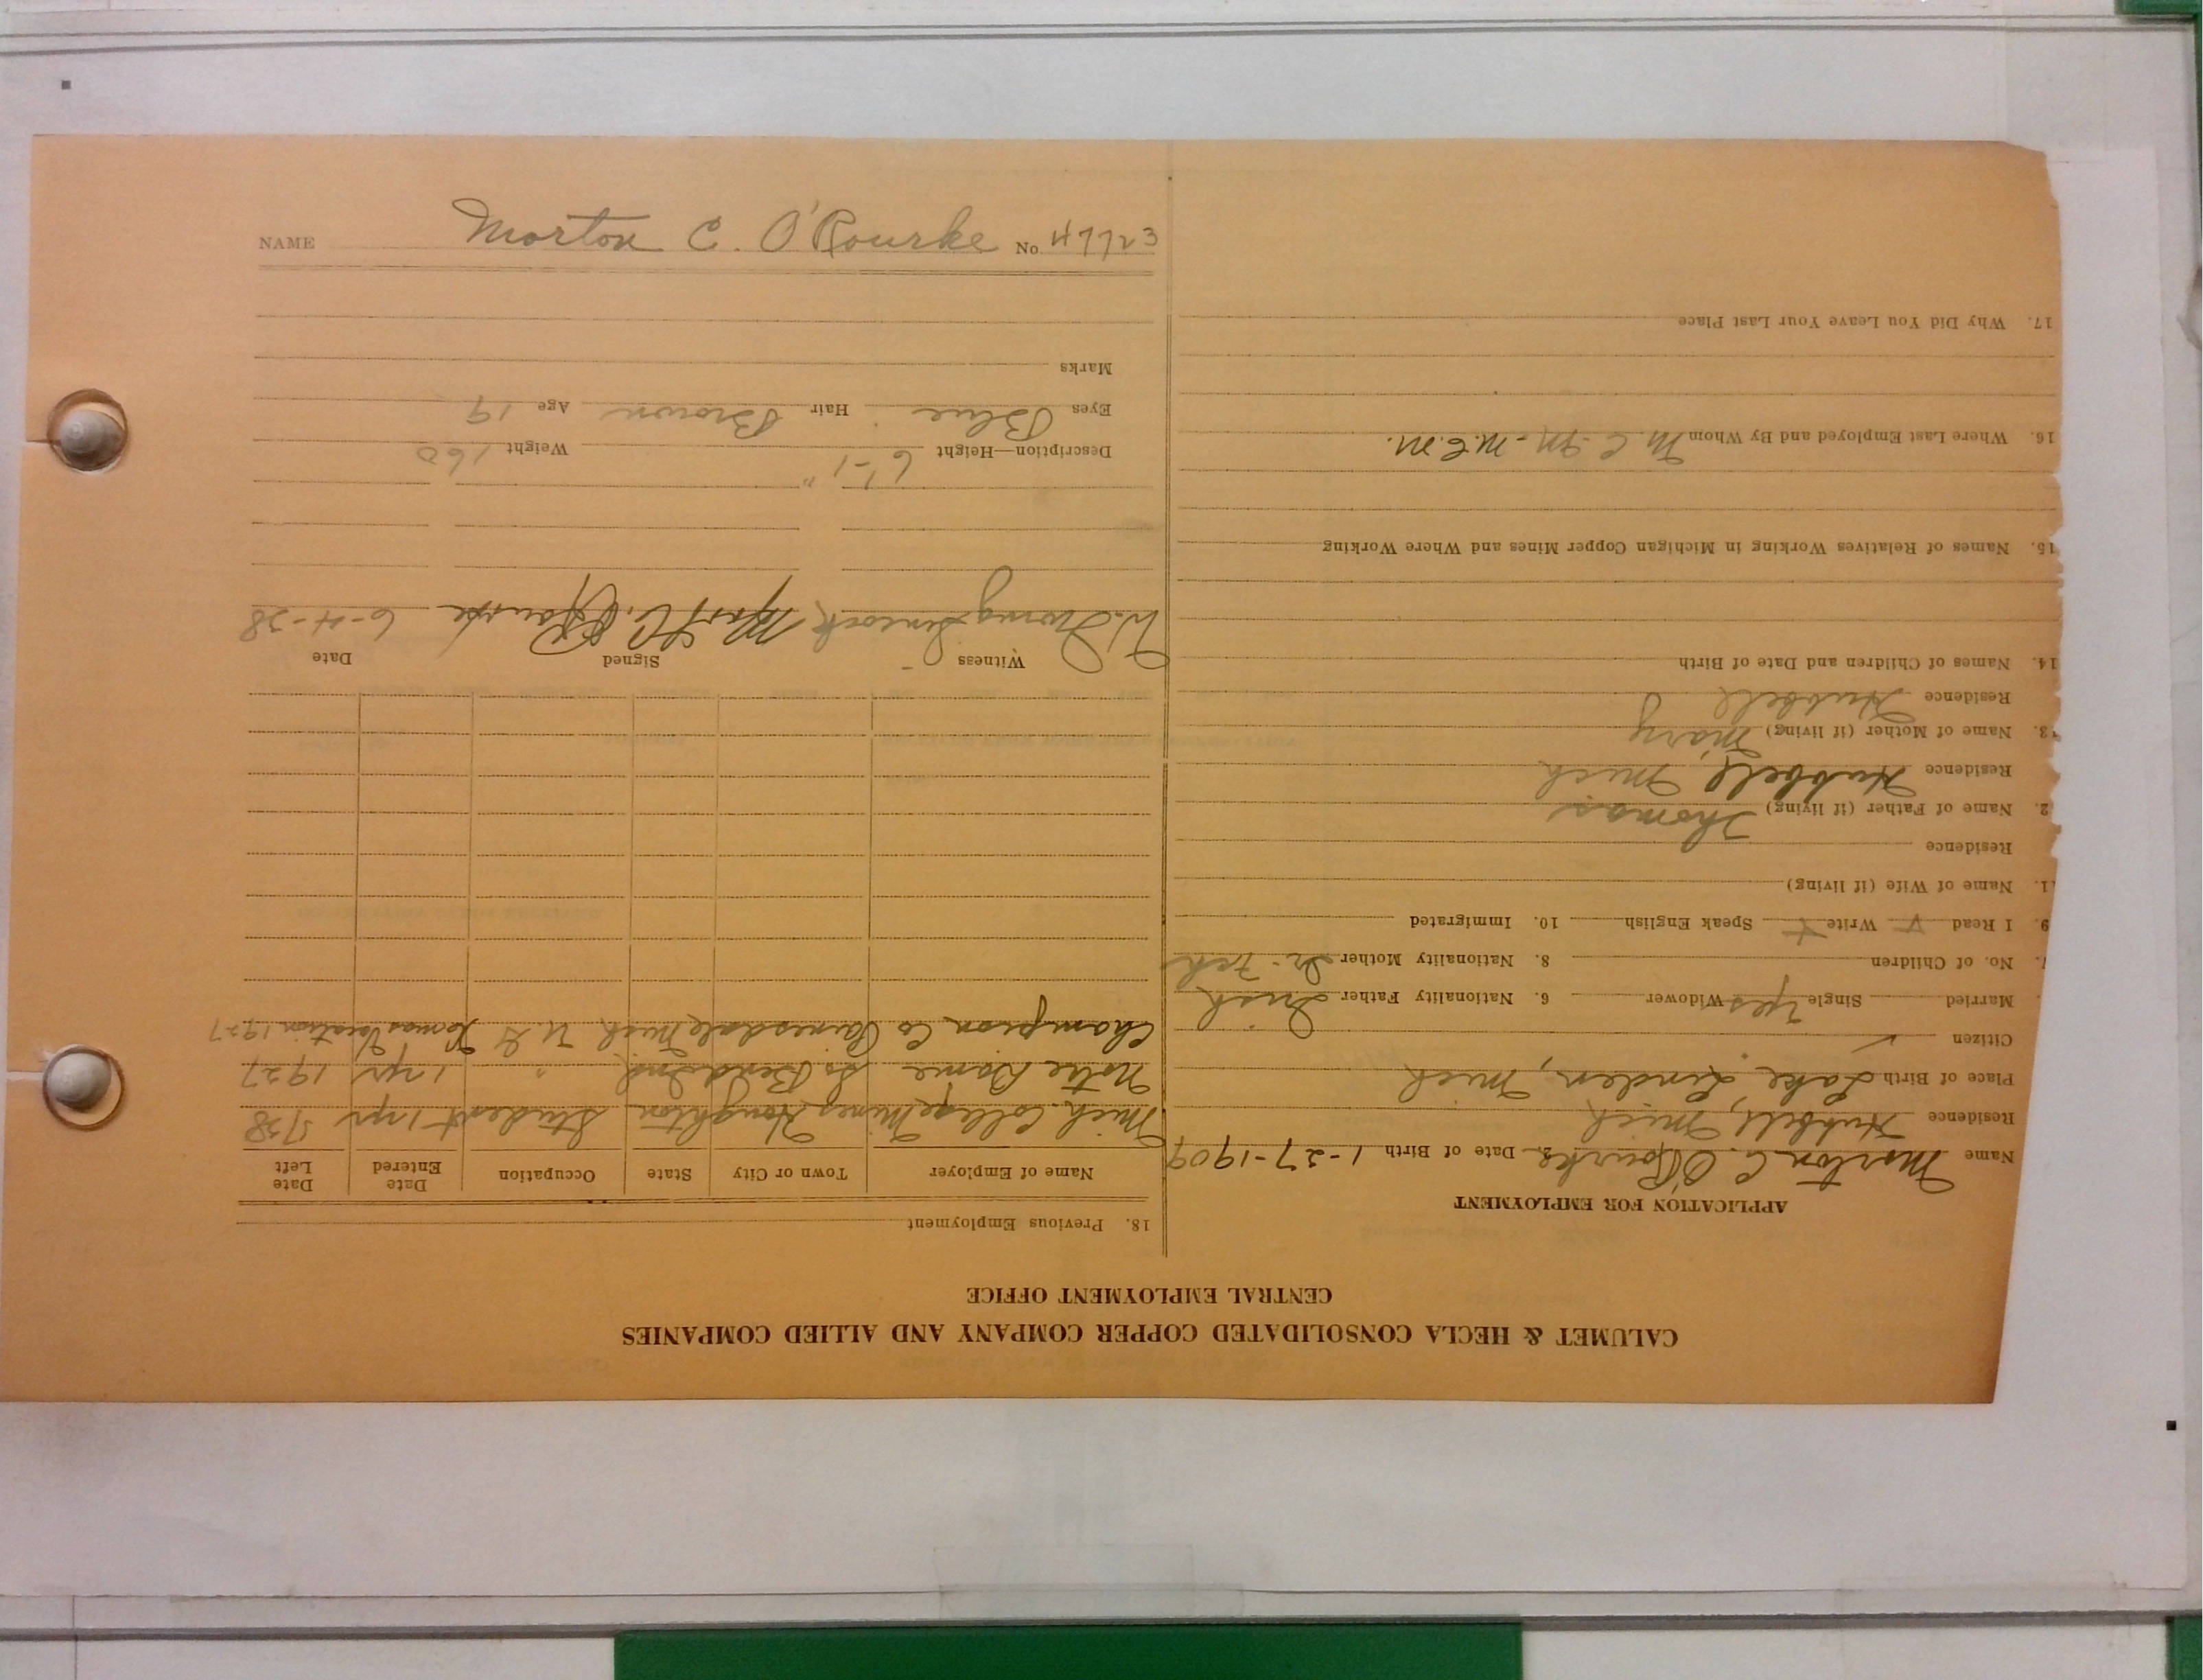 CALUMET & HECLA CONSOLIDATED COPPER COMPANY AND ALLIED COMPANIES
CENTRAL EMPLOYMENT OFFICE
APPLICATION FOR EMPLOYMENT
Name Morton C. O'Rourke 2. Date of Birth 1-27-1909
Residence Hubbell, Mich
Place of Birth Lake Linden, Mich
Citizen ✓
Married Single Yes Widower 6. Nationality Father Irish
7. No. of Children 8. Nationality Mother Ir-Fch
9. I Read Write Speak English 10. Immigrated
11. Name of Wife (if living)
Residence
2. Name of Father (if living) Thomas
Residence Hubbell, Mich
3. Name of Mother (if living) Mary
Residence Hubbell
14. Names of Children and Date of Birth
15. Names of Relatives Working in Michigan Copper Mines and Where Working
16. Where Last Employed and By Whom M.C.M.-M.C.M.
17. Why Did You Leave Your Last Place
18. Previous Employment
Name of Employer Town or City State Occupation Date Entered Date Left
Mich. College Mines Houghton Student 1 yr 5/28
Notre Dame So Bend Ind " 1 yr 1927
Champion Co Painesdale Mich U.G. Vacation 1927
Witness Signed Date
W. Simcock Mort C. O'Rourke 6-4-28
Description—Height 6'-1" Weight 160
Eyes Blue Hair Brown Age 19
Marks
NAME Morton C. O'Rourke No. 47723